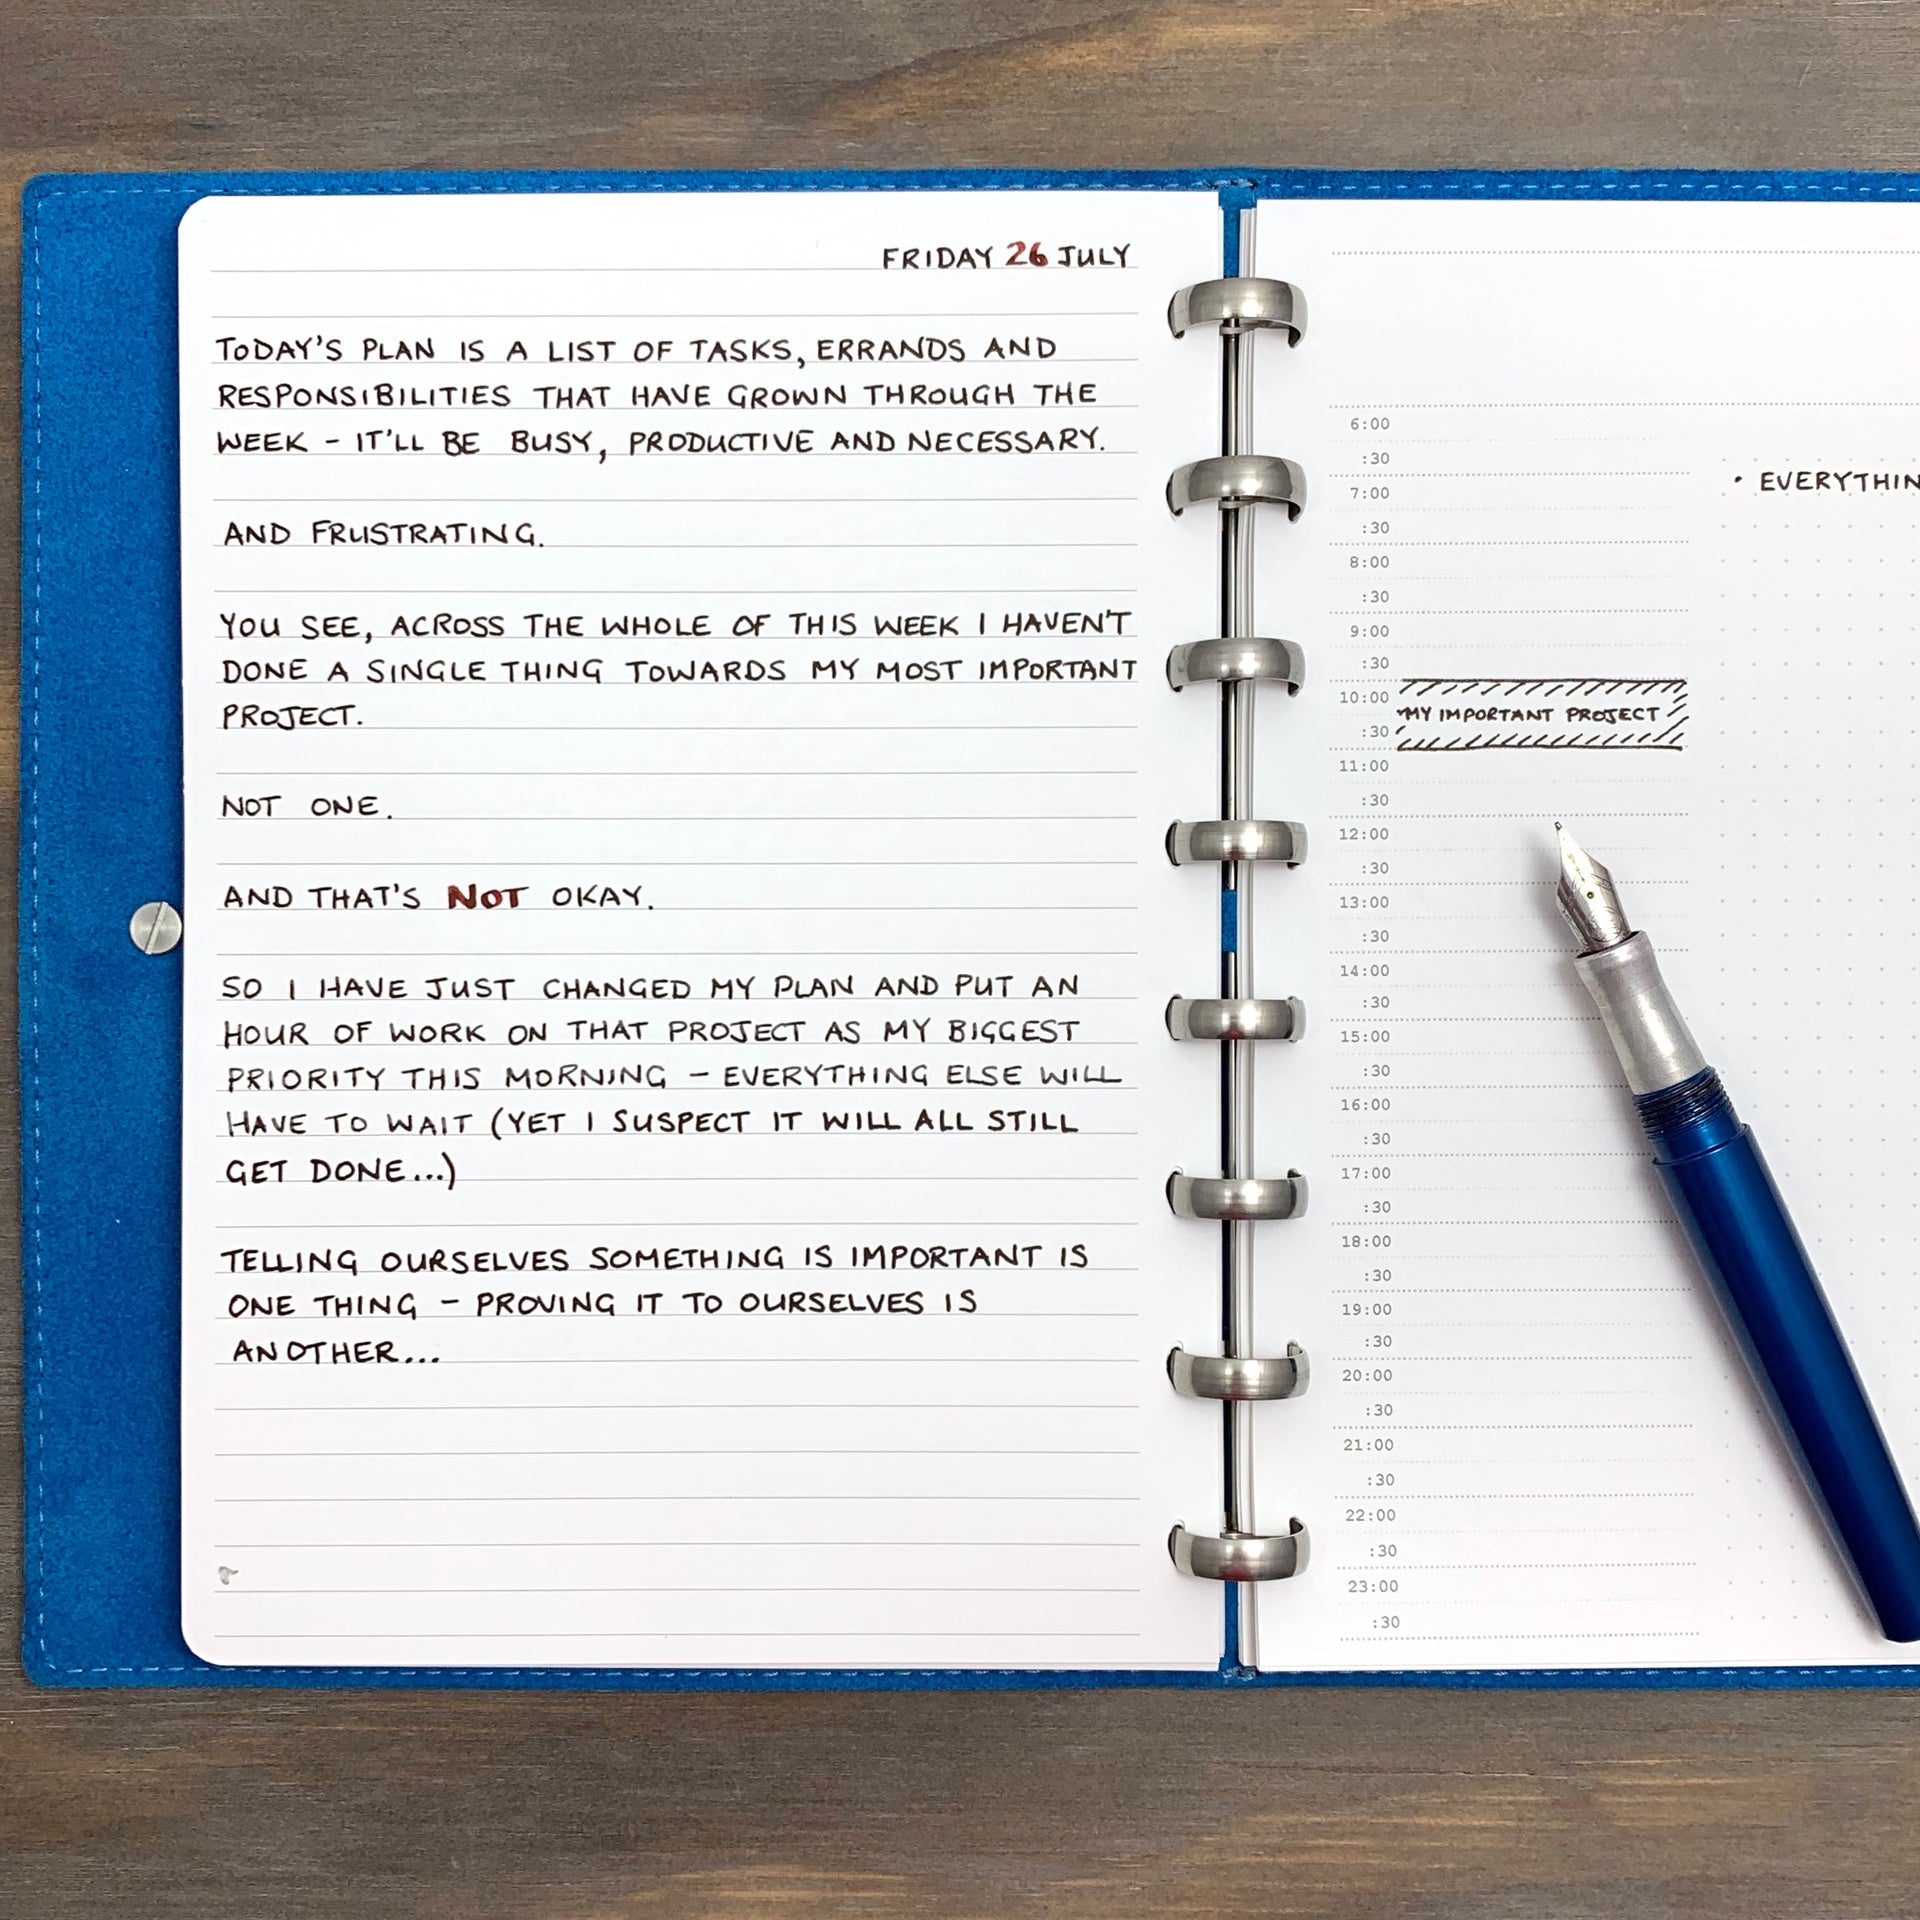 FRIDAY 26 JULY
TODAY'S PLAN IS A LIST OF TASKS, ERRANDS AND
RESPONSIBILITIES THAT HAVE GROWN THROUGH THE
WEEK - IT'LL BE BUSY, PRODUCTIVE AND NECESSARY.
AND FRUSTRATING.
YOU SEE, ACROSS THE WHOLE OF THIS WEEK I HAVEN'T
DONE A SINGLE THING TOWARDS MY MOST IMPORTANT
PROJECT.
NOT ONE.
AND THAT'S NOT OKAY.
SO I HAVE JUST CHANGED MY PLAN AND PUT AN
HOUR OF WORK ON THAT PROJECT AS MY BIGGEST
PRIORITY THIS MORNING - EVERYTHING ELSE WILL
HAVE TO WAIT (YET I SUSPECT IT WILL ALL STILL
GET DONE...)
TELLING OURSELVES SOMETHING IS IMPORTANT IS
ONE THING - PROVING IT TO OURSELVES IS
ANOTHER...
6:00
:30
7:00
:30
8:00
:30
9:00
:30
10:00
MY IMPORTANT PROJECT
:30
11:00
:30
12:00
:30
13:00
:30
14:00
:30
15:00
:30
16:00
:30
17:00
:30
18:00
:30
19:00
:30
20:00
:30
21:00
:30
22:00
:30
23:00
:30
• EVERYTHIN